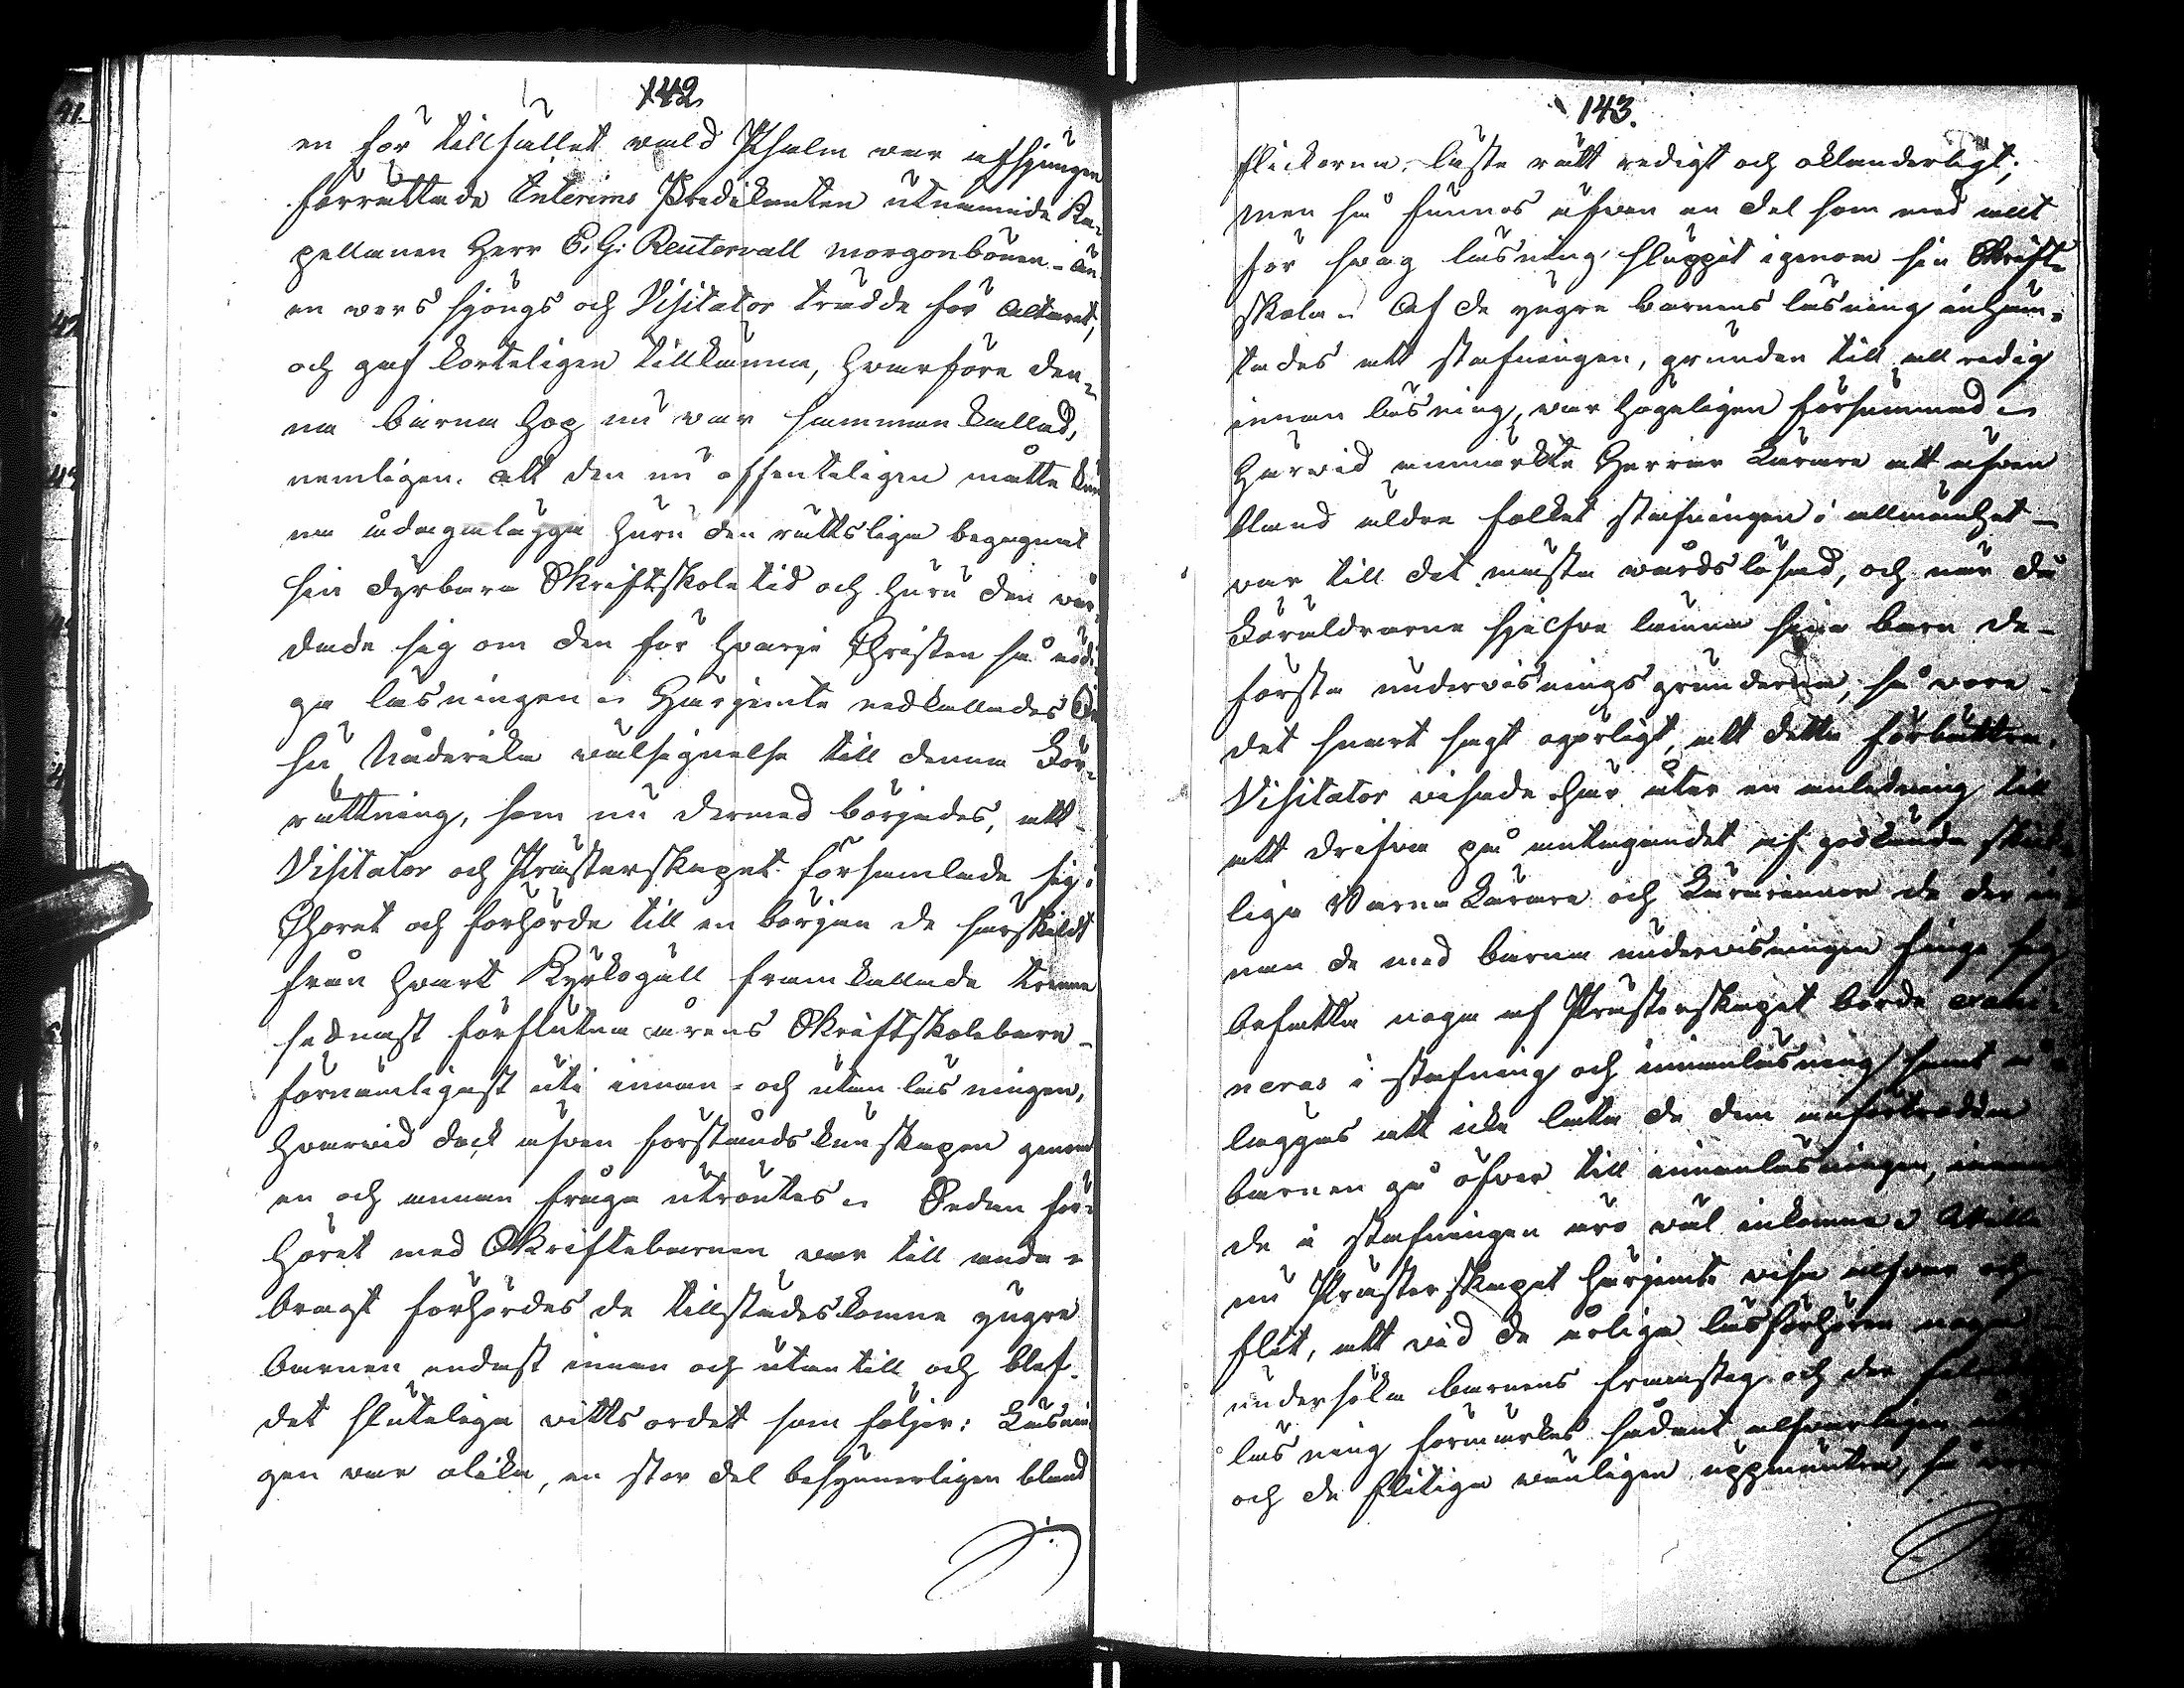 142.
en för tillfället vald Psalm var afsjungen
förrättade Interims Predikanten utnämnde Ka-
pellanen Herr C. G. Reuterwall morgonbönen – än
en vers sjöngs och Visitator trädde för Altaret,
och gaf korteligen tillkänna, hvarföre den-
na barna hop nu var sammankallad,
nemligen, att den nu offenteligen måtte kun
na ådagalägga huru den rätteliga begagnat
sin dyrbara Skriftskoletid och huru den vår-
dade sig om den för hvarje Christen så nödi-
ga läsningen. Härjemte nedkallades
Nåderika välsignelse till denna För-
rättning, som nu dermed börjades, att
Visitator och Prästerskapet församlade sig i
Choret och förhörde till en början de särskildt
från hvart Kyrkogäll framkallade trenne
sednast förflutna årens Skriftskolebarn –
förnämligast uti innan- och utan läsningen,
hvarvid dock äfven förståndskunskapen genom
en och annan fråga utröntes. Sedan för-
höret med Skriftebarnen var till ända
bragt förhördes de tillstädeskomne yngre
barnen endast innan och utantill och blef
det sluteliga vittsordet som följer: Läsnin
gen var olika, en stor del besynnerligen bland
143.
flickorna, läste rätt redigt och oklanderligt;
men så funnos äfven en del som med allt
för svag läsning sluppit igenom sin Skrift-
skola. Af de yngre barnens läsning inhäm-
tades att stafningen, grunden till all redig
innan läsning, var högeligen försummad.
Härvid anmärkte Herrar Lärare att äfven
bland äldre folket stafningen i allmänhet –
var till det mesta vårdslösad, och när då
Föräldrarne sjelfva lämna sina barn de –
första undervisnings grunderna, så vore
det snart sagt ogörligt, att detta förbättra.
Visitator visade här åter en anledning till
att drifva på antagandet af godkända skick-
liga Barna Lärare och Lärarinnor de der in-
nan de med barna undervisningen finge sig
befatta noga af Prästerskapet borde exami-
neras i stafning och innanläsning samt å-
läggas att icke låta de dem anförtrodda
barnen gå öfver till innanläsningen, innan
de i stafningen äro väl inkomna. Ville
nu Prästerskapet härjemte visa allvar och
flit, att vid de årliga läsförhören noga
undersöka barnens framsteg och der
läsning förmärkes sådant alfvarligen
och de flitiga vänligen uppmuntra, så